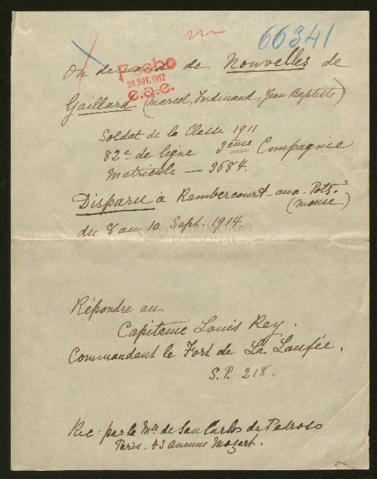 66341
On demande de Nouvelles de
Fecho
28 NOV. 1917
Gaillard (Marcel, Ferdinand, Jean Baptiste)
Soldat de la Classe 1911
82e de ligne 8ème Compagnie
Matricule — 3684.
Disparu à Rembercourt-aux-Pots.
(Meuse)
du 8 au 10 Sept. 1914.
Répondre au
Capitaine Louis Rey.
Commandant le Fort de La
S.P. 218.
Rec. par la Mse de San Carlos de Pedroso
Paris - 23 avenue Mozart.